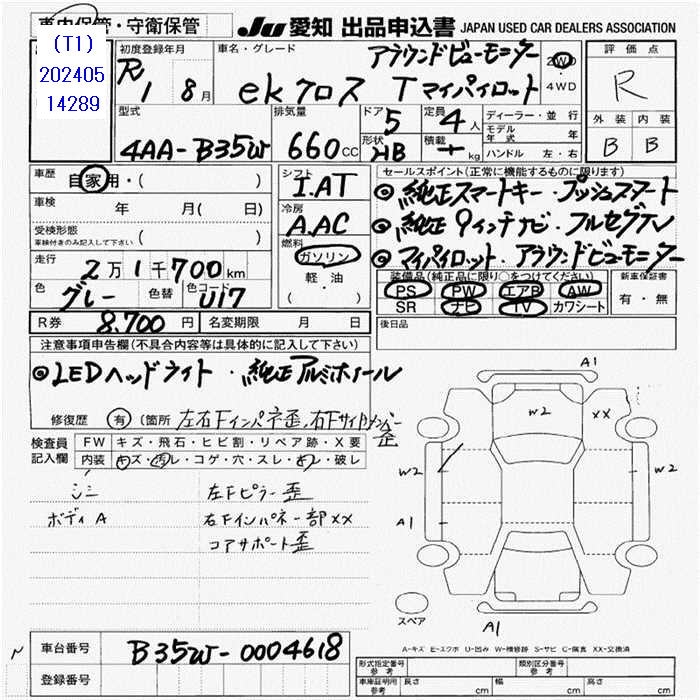 車内保管・守衛保管
JU 愛知 出品申込書 JAPAN USED CAR DEALERS ASSOCIATION
(T1)
202405
14289
初度登録年月
R1 8月
車名・グレード
アラウンドビューモニター
ekクロス T マイパイロット
2WD
4WD
評価点
R
外装 内装
B B
型式
4AA-B35W
排気量
660cc
ドア
5
形状
HB
定員
4人
積載
kg
ディーラー・並行
モデル年式 年
ハンドル 左・右
車歴
自家用・( )
車検 年 月( 日)
受検形態
車検付きのみ記入して下さい ( )
走行
2万1千700km
色
グレー
色替
色コード
U17
シフト
I.AT
冷房
A.AC
燃料
ガソリン
軽・油
( )
セールスポイント(正常に機能するものに限ります)
◎純正スマートキー・プッシュスタート
◎純正9インチナビ・フルセグTV
◎マイパイロット・アラウンドビューモニター
装備品(純正品に限り○をつけてください)
PS PW エアB AW
SR ナビ TV カワシート
新車保証書
有・無
R券 8,700円
名変期限 月 日
後日品
注意事項申告欄(不具合内容等は具体的に記入して下さい)
◎LEDヘッドライト・純正アルミホイール
修復歴 有 (箇所 左右Fインパネ歪,右Fサイドメンバー歪
検査員記入欄
FW キズ・飛石・ヒビ割・リペア跡・X要
内装 キズ・汚レ・コゲ・穴・スレ・切レ・破レ
シミ 左Fピラー歪
ボディA 右Fインパネ一部XX
コアサポート歪
A1
W2
XX
W2
W2
A1
スペア
A1
A-キズ E-エクボ U-凹み W-補修跡 S-サビ C-腐食 XX-交換済
車台番号 B35W-0004618
登録番号
形式指定番号
参考
類別区分番号
参考
車庫証明用
参考
長さ cm 幅 cm 高さ cm